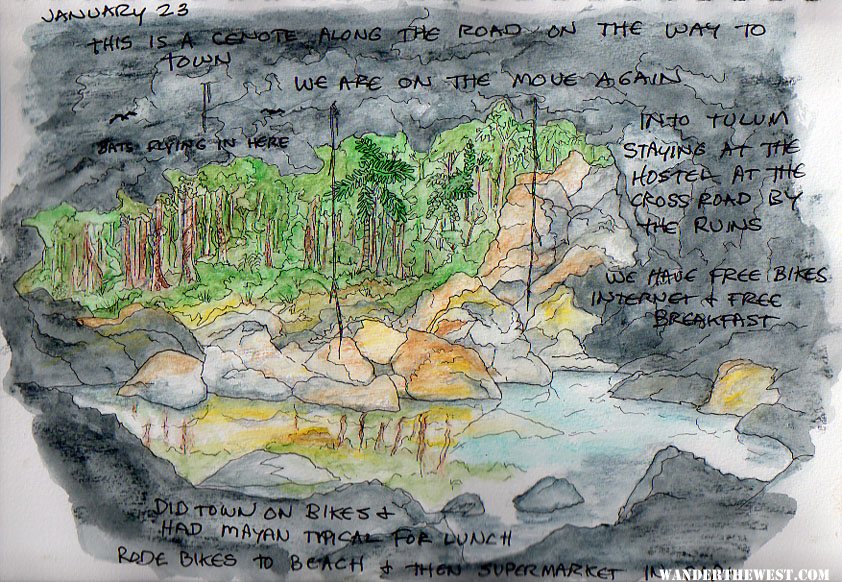 JANUARY 23
THIS IS A CENOTE ALONG THE ROAD ON THE WAY TO
TOWN
WE ARE ON THE MOVE AGAIN
INTO TULUM
STAYING AT THE
HOSTEL AT THE
CROSS ROAD BY
THE RUINS
BATS FLYING IN HERE
WE HAVE FREE BIKES
INTERNET & FREE
BREAKFAST
DID TOWN ON BIKES &
HAD MAYAN TYPICAL FOR LUNCH
RODE BIKES TO BEACH & THEN SUPERMARKET IN
WANDERTHEWEST.COM